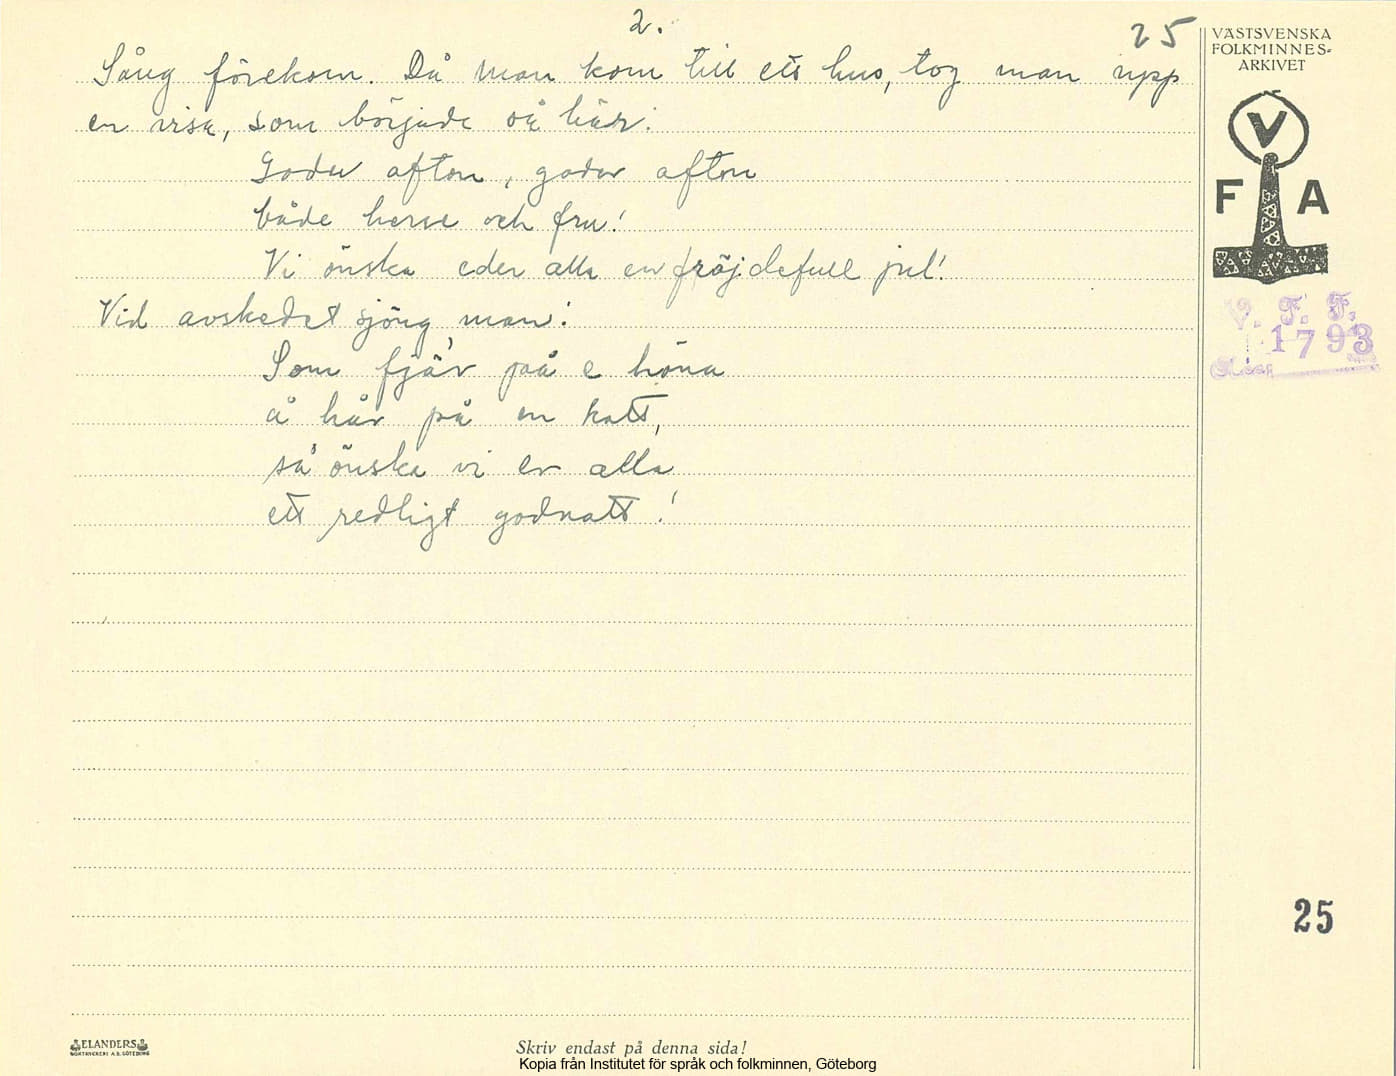 2.
25
Sång förekom. Då man kom till ett hus, tog man upp
en visa, som började så här:
Goder afton, goder afton
både herre och fru!
Vi önska eder alla en fröjdefull jul!
Vid avskedet sjöng man:
Som fjär på e höna
å hår på en katt,
så önska vi er alla
ett redligt godnatt!
VÄSTSVENSKA
FOLKMINNES-
ARKIVET
V
F A
V. F. F.
1793
25
ELANDERS
BOKTRYCKERI A.B. GÖTEBORG
Skriv endast på denna sida!
Kopia från Institutet för språk och folkminnen, Göteborg